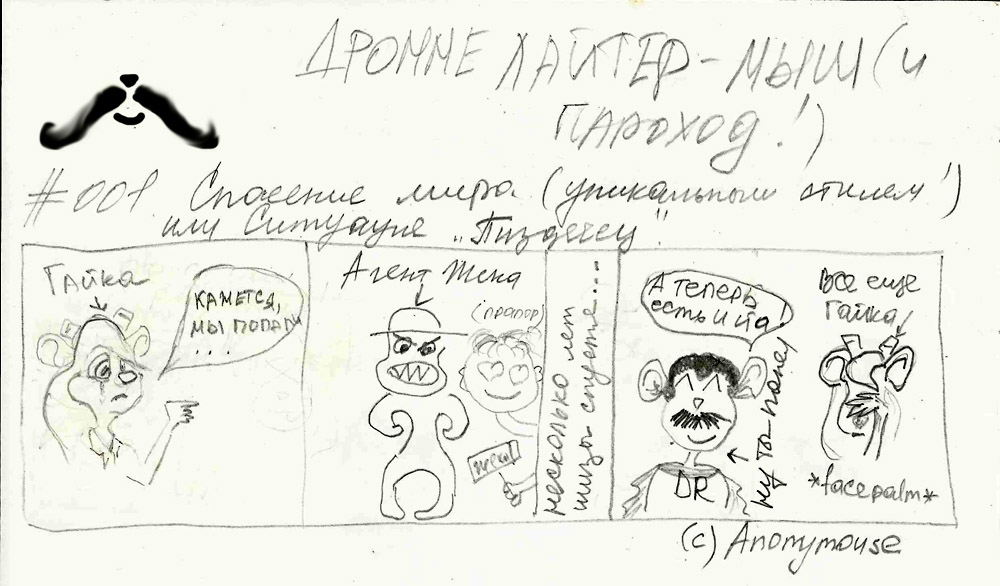 ДРОММЕ ЛАЙТЕР-МЫШ (и
ПАРОХОД!)
#001. Спасение мира (уникальным стилем!)
или Ситуация „Пиздечец".
Гайка
КАЖЕТСЯ,
МЫ ПОПАЛИ
...
Агент Жека
(прапор)
несколько лет
шизы спустя...
А ТЕПЕРЬ
есть и ЙА!
DR
ну ты понел
Все еще
Гайка!
*facepalm*
(c) Anonymouse